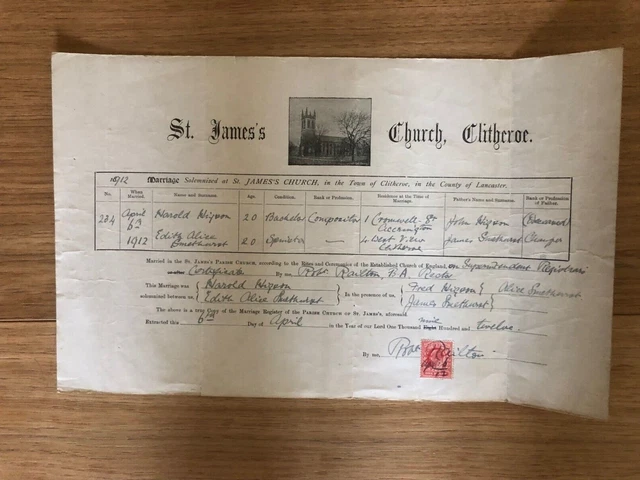 St. James's Church, Clitheroe.
1912 Marriage Solemnized at St. JAMES'S CHURCH, in the Town of Clitheroe, in the County of Lancaster.
No. When Married. Name and Surname. Age. Condition. Rank or Profession. Residence at the Time of Marriage. Father's Name and Surname. Rank or Profession of Father.
234 April 6th 1912 Harold Higson 20 Bachelor Compositor 1 Cromwell St Accrington John Higson (Deceased)
Edith Alice Smethurst 20 Spinster — 4 Bent View Clitheroe James Smethurst
Married in the PARISH CHURCH, according to the Rites and Ceremonies of the Established Church of England, on Superintendent Registrars
or after Certificate By me, Robt Railton, B.A. Rector
This Marriage was solemnized between us, Harold Higson Edith Alice Smethurst In the presence of us, Fred Higson Alice Smethurst James Smethurst
The above is a true Copy of the Marriage Register of the PARISH CHURCH OF ST. JAMES'S, aforesaid.
Extracted this 6th Day of April in the Year of our Lord One Thousand Eight nine Hundred and twelve.
By me, Robt Railton